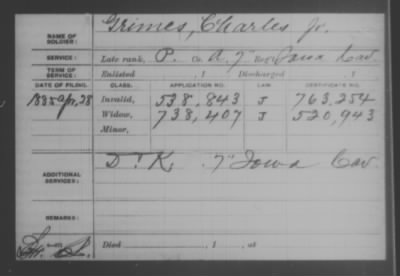 Grimes, Charles Jr.
NAME OF SOLDIER:
SERVICE: Late rank, P. Co. A, 7" Reg't Iowa Cav
TERM OF SERVICE: Enlisted , 1 Discharged , 1
DATE OF FILING. CLASS. APPLICATION NO. LAW. CERTIFICATE NO.
1885 Apr, 28 Invalid, 538,843 J 763,254
Widow, 738,407 J 520,943
Minor,
ADDITIONAL SERVICES: D" K, 7" Iowa Cav
REMARKS:
Died , 1 , at